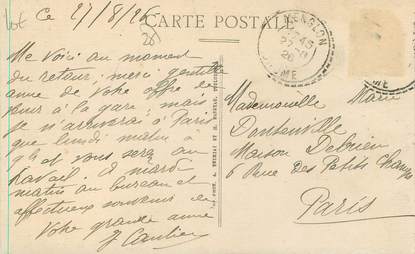 Ce 27/8/26
CARTE POSTALE
Me Voici au moment
du retour; merci gentille
anne de Votre offre de
venir à la gare, mais
je n'arriverai à Paris
que lundi matin à
9h et vous serez au
travail. à mardi
matin au bureau et
affectueux souvenir de
Votre grande anne
Mademoiselle Marie
Dontenville
Maison Debrieu
6 Rue Des Petits Champs
Paris